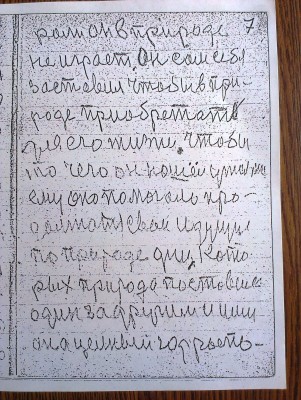 роли он в природе 7
не играет. Он сам себя
заставил чтобы в при-
роде приобретать
для его жизни, чтобы
то чего он нашёл
ему оно помогало про-
идущие
по природе дни, кото-
рых природа поставила
один за другим и ими
она целый